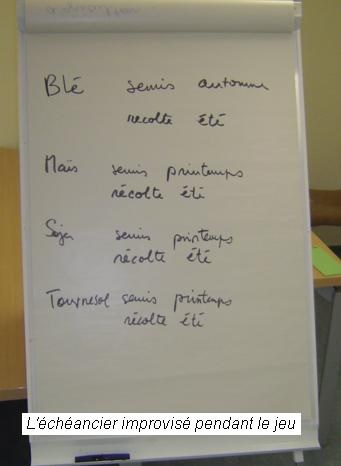 Blé semis automne
récolte été
Maïs semis printemps
récolte été
Soja semis printemps
récolte été
Tournesol semis printemps
récolte été
L'échéancier improvisé pendant le jeu